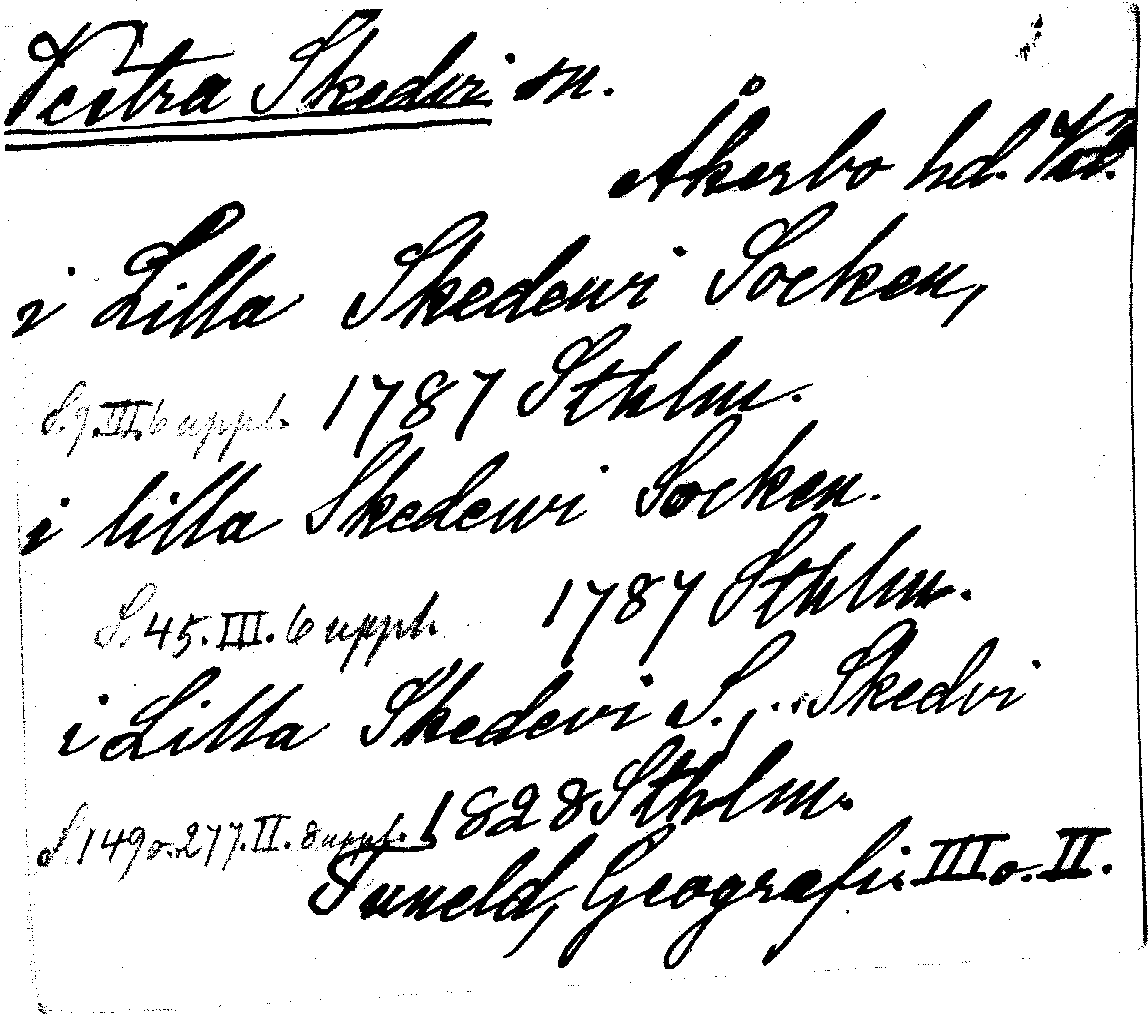 Vestra Skedvi sn.
Åkerbo hd. Vstl.
i Lilla Skedewi Socken,
S. 9. III. 6 uppl. 1787 Sthlm.
i lilla Skedewi Socken.
S. 45. III. 6 uppl. 1787 Sthlm.
i Lilla Skedevi S., .. Skedvi
S. 149 o. 277. II. 8 uppl. 1828 Sthlm.
Tuneld, Geografi. III o. II.